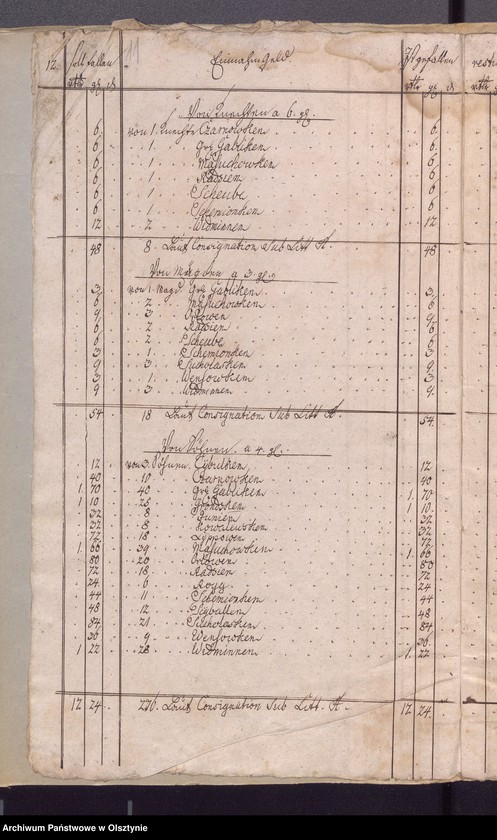 12. Soll fallen 11 Einnahm Geld. Ist gefallen rest
rtlr gl d rtlr gl d rtlr
Von Knechten a 6. gl.
6. von 1. Knechte Czarnowken 6.
6. 1. Grß Gablicken 6.
6. 1 Masuchowken 6.
6. 1 Radzien 6.
6. 1 Scheuba 6.
6. 1 Schemionken 6.
12 2 Widminnen 12
48 8. Lauth Consignation Sub Litt A. 48
Von Mägden a 3. gl.
3. von 1. Magd Grß Gablicken 3.
6 2 Masuchowken 6.
9 3 Orlowen 9.
6 2 Radzien 6
6 2 Scheuba 6
3 1 Schemionken 3
9 3 9
3 1 Wensowken 3
9 3. Widminnen 9.
54 18 Lauth Consignation Sub Litt A. 54.
a 4. gl.
12 von 3. Cybulken 12
40 10 Czarnowken 40
1. 70 40 Grß Gablicken 1. 70
1 10 25 1 10
32 8 32
32 8 Kowalewsken 32
72 18 Lipowen 72
1. 66 39 Masuchowken 1 66
80 20 Orlowen 80
72 18 Radzien 72
24. 6 24
44 11 Schemionken 44
48 12 48
84 21 84
36 9 Wensowken 36.
1 22 28 Widminnen 1. 22
12 24. 276. Lauth Consignation Sub Litt. A. 12 24.
Archiwum Państwowe w Olsztynie